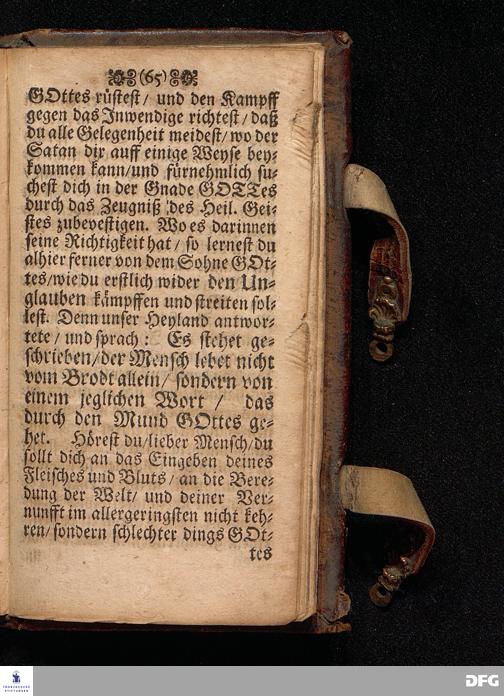 (65)
GOttes rüstest/ und den Kampff
gegen das Inwendige richtest/ daß
du alle Gelegenheit meidest/ wo der
Satan dir auff einige Weyse bey-
kommen kann/und fürnehmlich su-
chest dich in der Gnade GOTTes
durch das Zeugniß des Heil. Gei-
stes zubevestigen. Wo es darinnen
seine Richtigkeit hat/ so lernest du
alhier ferner von dem Sohne GOt-
tes/wie du erstlich wider den Un-
glauben kämpffen und streiten sol-
lest. Denn unser Heyland antwor-
tete/ und sprach: Es stehet ge-
schrieben/der Mensch lebet nicht
vom Brodt allein/ sondern von
einem jeglichen Wort/ das
durch den Mund GOttes ge-
het. Hörest du/lieber Mensch/du
sollt dich an das Eingeben deines
Fleisches und Bluts/ an die Bere-
dung der Welt/ und deiner Ver-
nunfft im allergeringsten nicht keh-
ren/sondern schlechter dings GOt-
tes
FRANCKESCHE
STIFTUNGEN
DFG